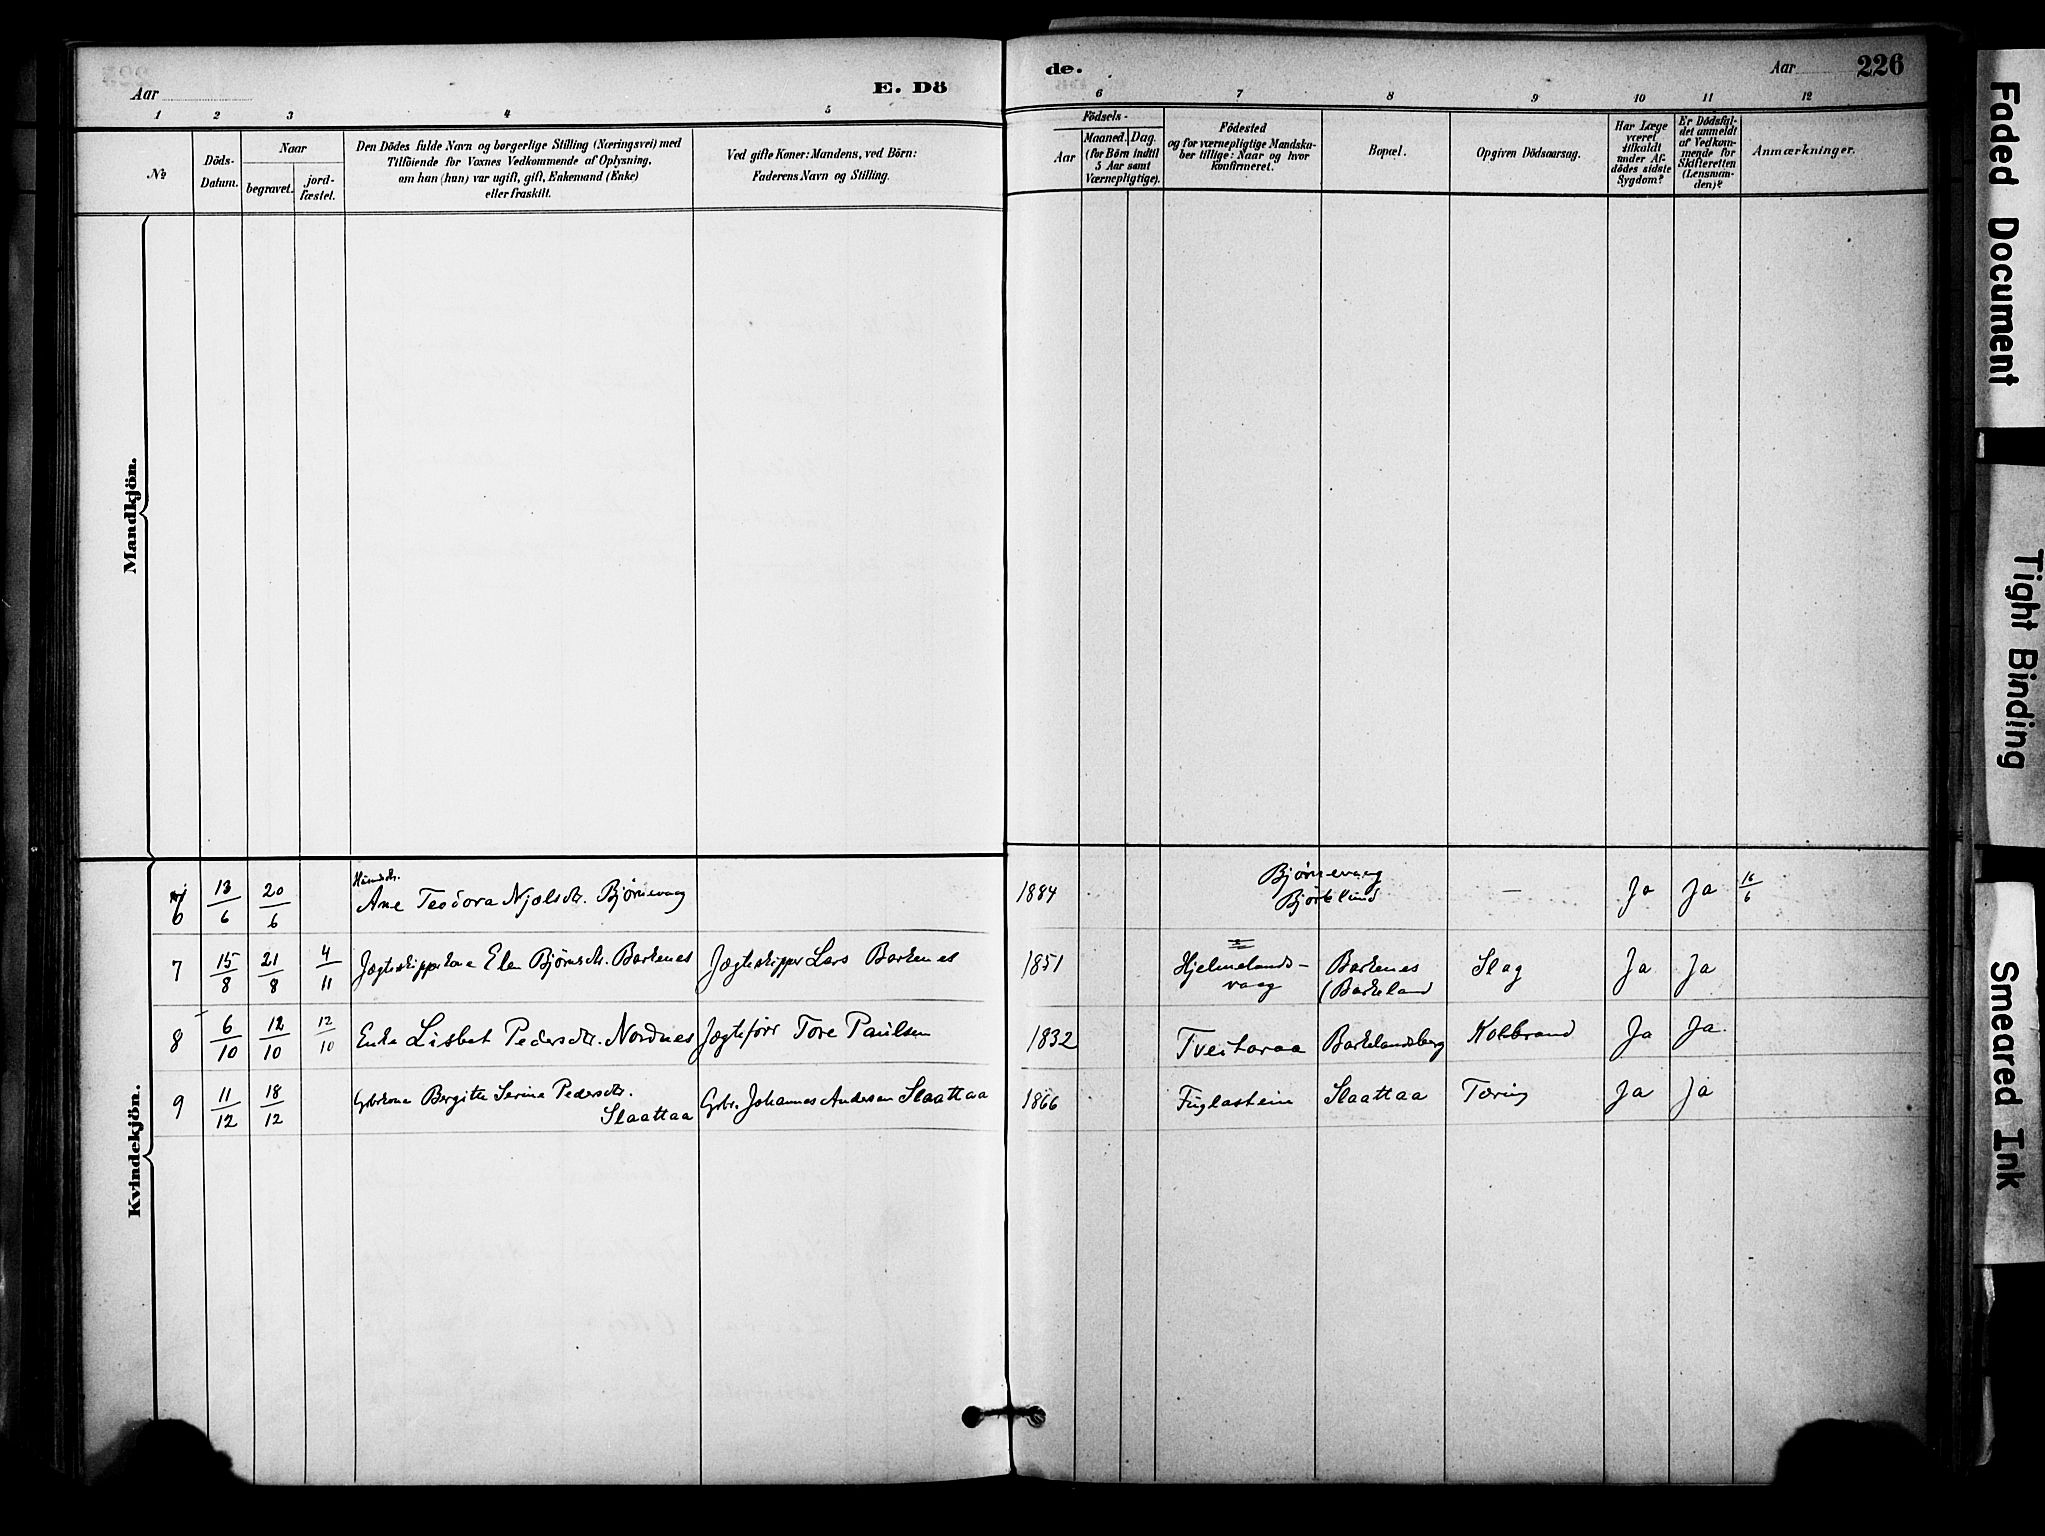 Aar
E. Dö
de.
Aar
226
1 2 3 4 5 6 7 8 9 10 11 12
No
Döds-
Datum.
Naar
begravet.
jord-
fæstet.
Den Dödes fulde Navn og borgerlige Stilling (Næringsvei) med
Tilföiende for Voxnes Vedkommende af Oplysning,
om han (hun) var ugift, gift, Enkemand (Enke)
eller fraskilt.
Ved gifte Koner: Mandens, ved Börn:
Faderens Navn og Stilling.
Födsels-
Aar
Maaned. Dag.
(for Börn indtil
5 Aar samt
Værnepligtige).
Födested
og for værnepligtige Mandska-
ber tillige: Naar og hvor
konfirmeret.
Bopæl.
Opgiven Dödsaarsag.
Har Læge
været
tilkaldt
under Af-
dödes sidste
Sygdom?
Er Dödsfal-
det anmeldt
af Vedkom-
mende for
Skifteretten
(Lensman-
den)?
Anmærkninger.
Mandkjön.
Kvindekjön.
6 13/6 20/6 Ane Teodora Njælsdtr. Bjørnevaag 1884 Bjørnevaag — Ja Ja 16/6
Bjørklund
7 15/8 21/8 4/11 Jægteskipperkone Elen Bjørnsdtr. Barkenes Jægteskipper Lars Barkenes 1851 Hjelmelands- Barkenes Slag Ja Ja
vaag (Barkeland
8 6/10 12/10 12/10 Enke Lisbet Pedersdtr. Nordnes Jægtefører Tore Paulsen 1832 Tveitaraa Barkelandsberg Kolbrand Ja Ja.
9 11/12 18/12 Gbrkone Bergitte Serina Pedersdtr. Gbr. Johannes Andersen Slaattaa 1866 Fuglastein Slaattaa Tæring Ja Ja
Slaattaa
Faded Document
Tight Binding
Smeared Ink